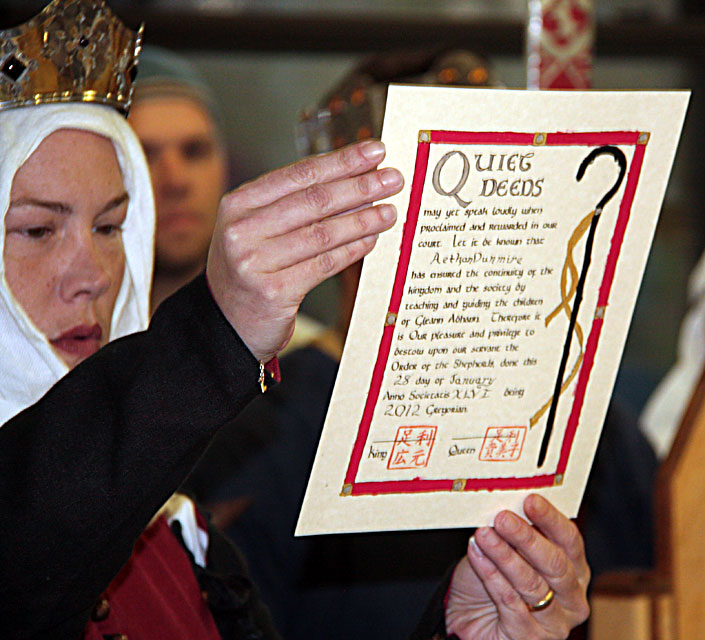 QUIET
DEEDS
may yet speak loudly when
proclaimed and rewarded in our
court. Let it be known that
Aethan Dunmire
has ensured the continuity of the
kingdom and the society by
teaching and guiding the children
of Gleann Abhann. Therefore it
is Our pleasure and privilege to
bestow upon our servant the
Order of the Shepherds done this
28 day of January
Anno Societatis XLVI being
2012 Gregorian
King 足利広元 Queen 足利